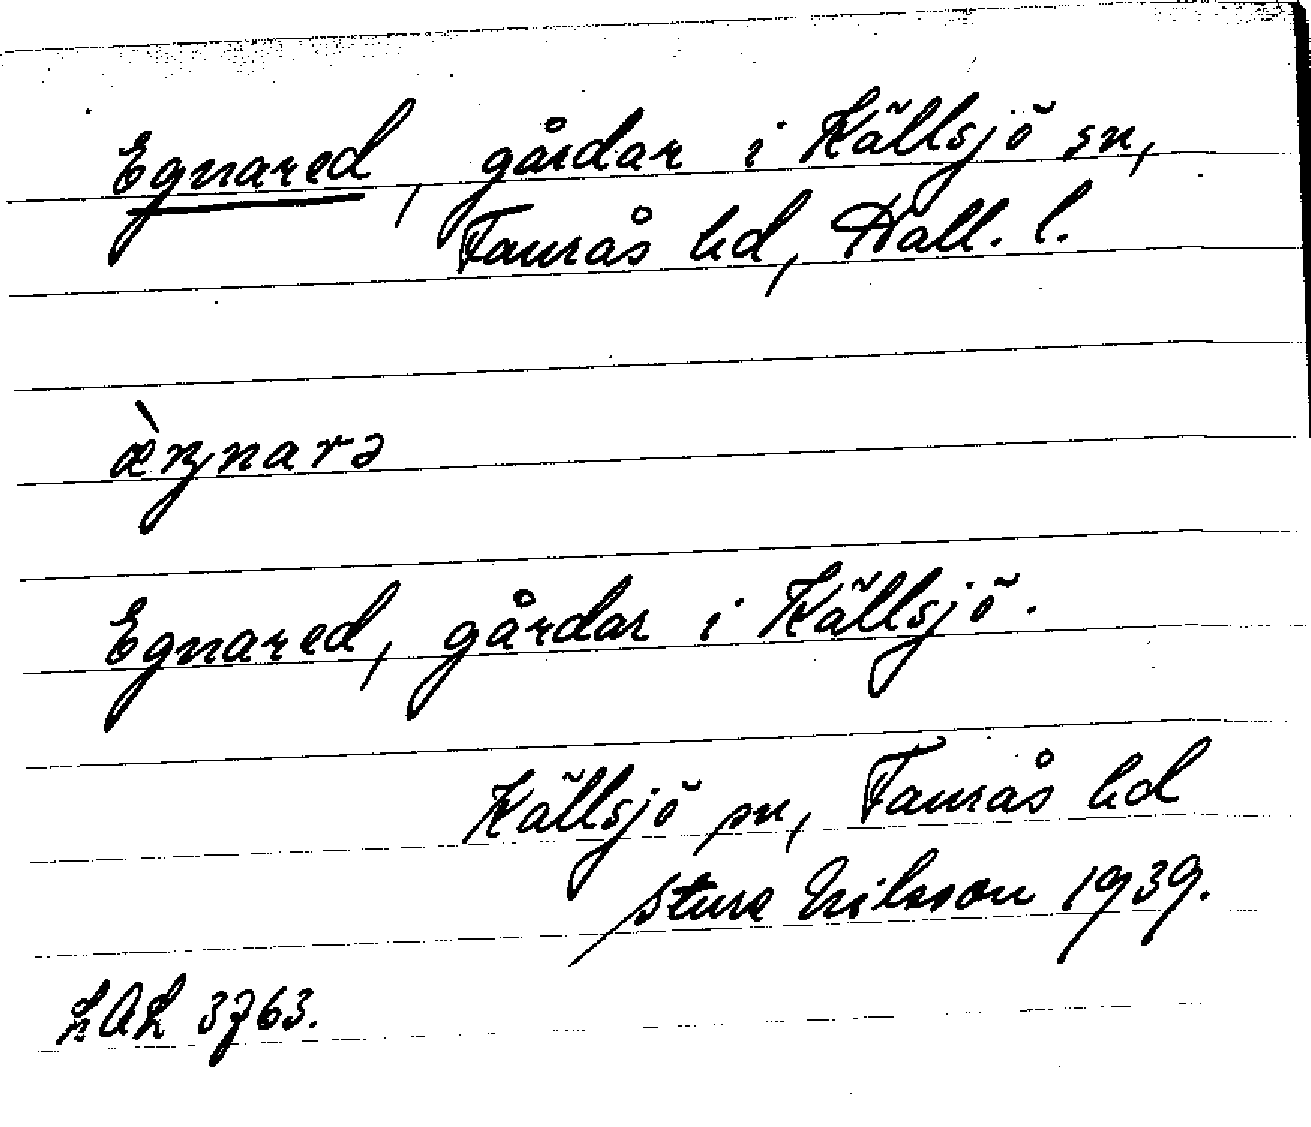 Egnared, gårdar i Källsjö sn,
Faurås hd, Hall. l.
æ̀ŋnarə
Egnared, gårdar i Källsjö.
Källsjö sn, Faurås hd
Sture Nilsson 1939.
LAL 3763.